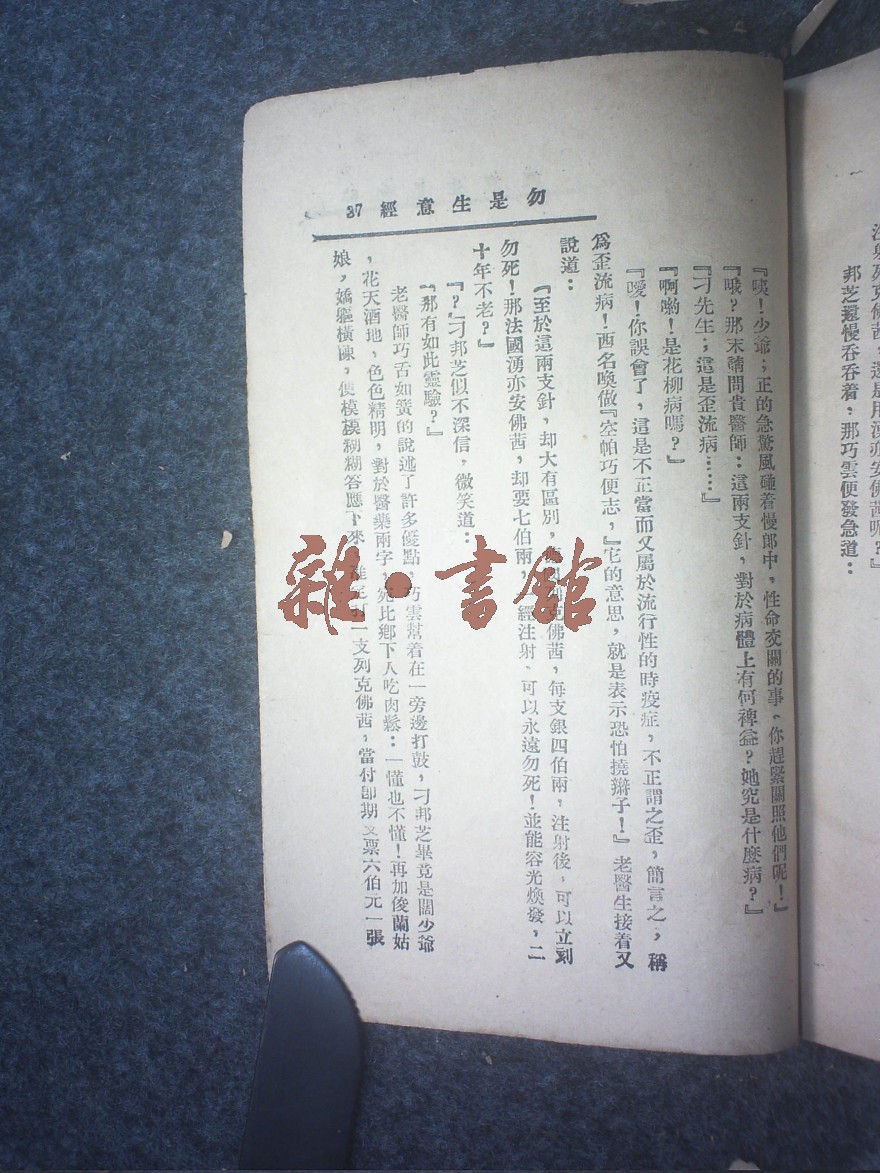 注射列克佛茜，還是用湧亦安佛茜呢？』
邦芝還慢吞吞着，那巧雲便發急道：
勿是生意經 37
『咦！少爺；正的急驚風碰着慢郎中，性命交關的事、你趕緊關照他們呢！』
『哦？那末請問貴醫師：這兩支針，對於病體上有何裨益？她究是什麼病？』
『刁先生；這是歪流病……』
『啊喲！是花柳病嗎？』
『噯！你誤會了，這是不正當而又屬於流行性的時疫症，不正謂之歪，簡言之，稱
爲歪流病！西名喚做『空帕巧便志，』它的意思，就是表示恐怕撓辮子！』老醫生接着又
說道：
『至於這兩支針，却大有區別，克佛茜，每支銀四伯兩，注射後，可以立刻
勿死！那法國湧亦安佛茜，却要七伯兩，經注射、可以永遠勿死！並能容光煥發，二
十年不老？』
『？』刁邦芝似不深信，微笑道：
『那有如此靈驗？』
老醫師巧舌如簧的說述了許多優點，巧雲幫着在一旁邊打鼓，刁邦芝畢竟是闊少爺
，花天酒地，色色精明，對於醫藥兩字，死比鄉下人吃肉鬆：一懂也不懂！再加俊蘭姑
娘，嬌軀橫陳，便模模糊糊答應下來，一支列克佛茜，當付即期支票六伯元一張
雜·書館